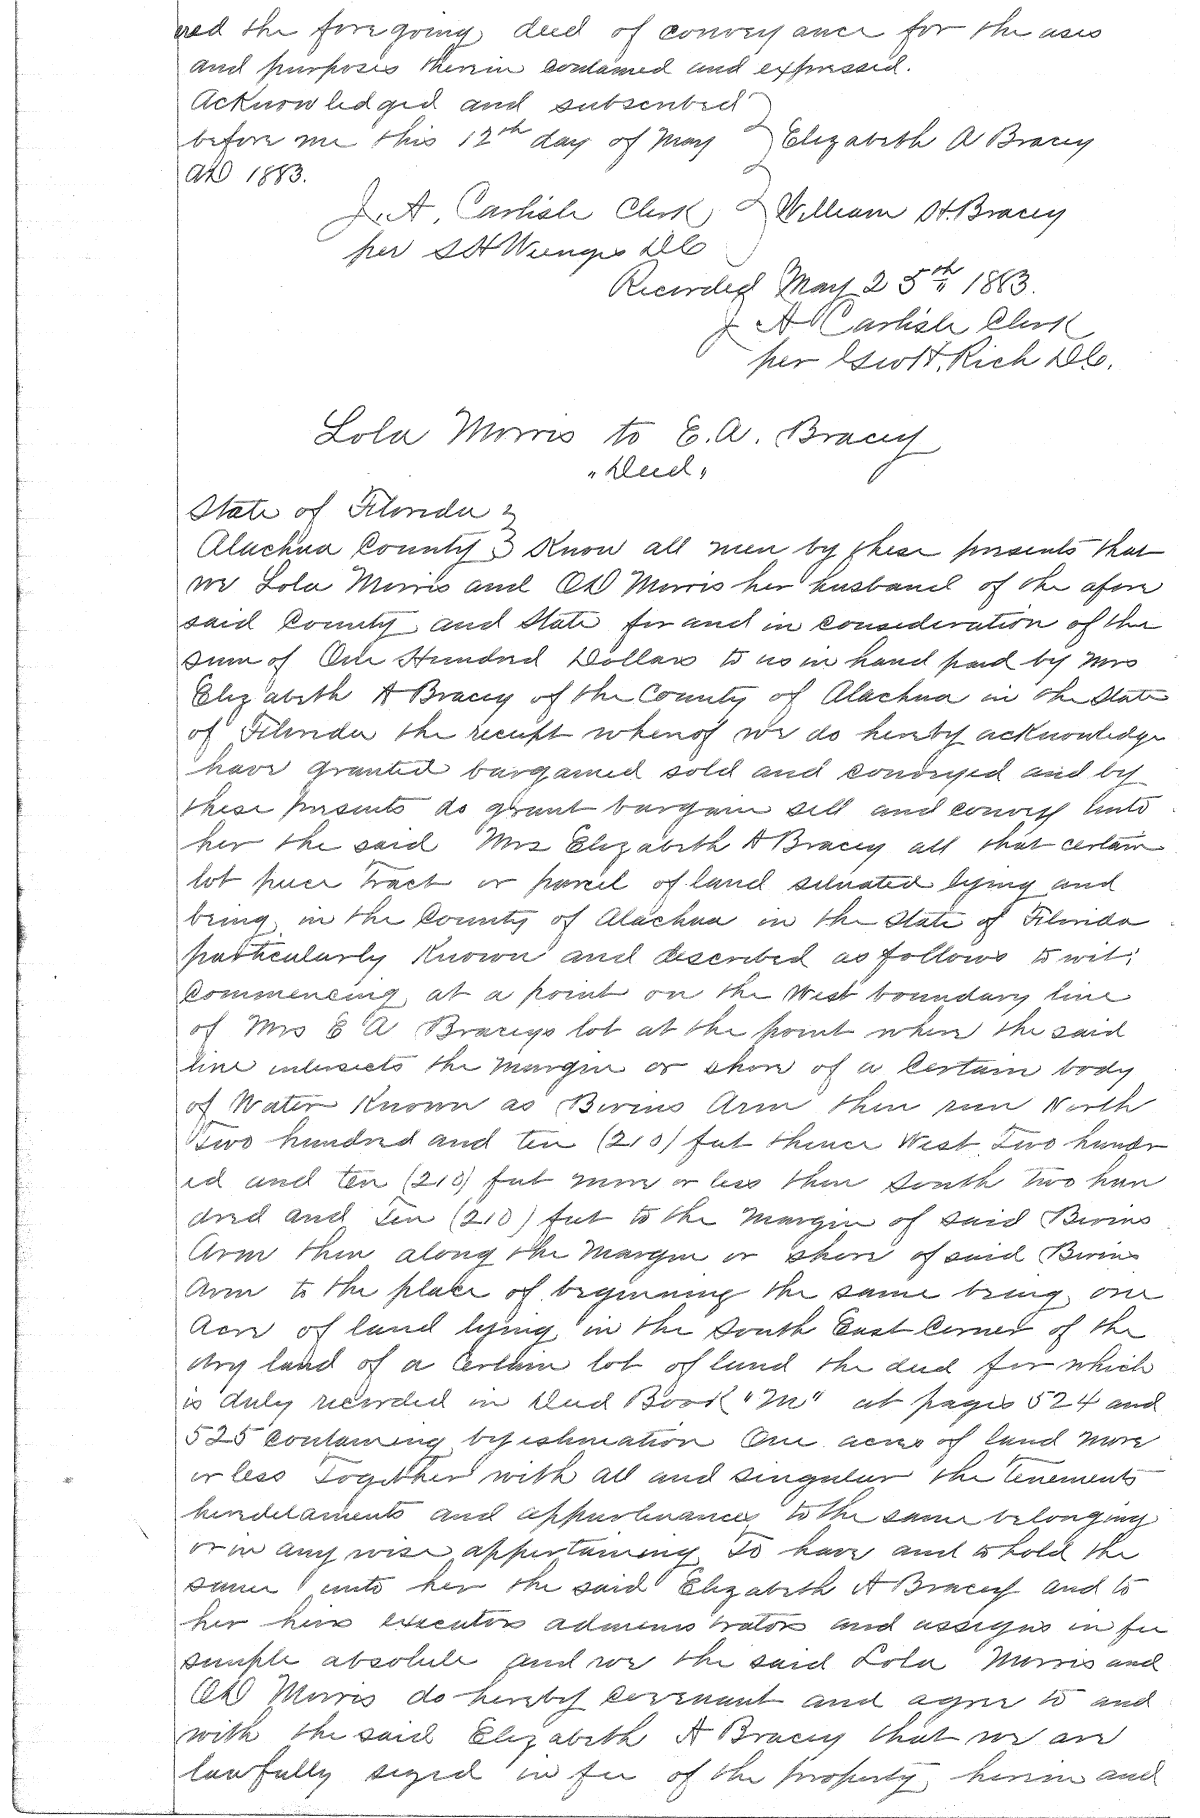 red the foregoing deed of conveyance for the uses
and purposes therein contained and expressed.
Acknowledged and subscribed
before me this 12th day of May } Elizabeth A Bracey
AD 1883.
J. A. Carlisle Clerk } William H. Bracey
per S H Wienges D C
Recorded May 25th 1883.
J A Carlisle Clerk
per Geo H. Rich D C.
Lola Morris to E. A. Bracey
"Deed"
State of Florida }
Alachua County } Know all men by these presents that
we Lola Morris and O D Morris her husband of the afore
said County and State for and in consideration of the
sum of One Hundred Dollars to us in hand paid by Mrs
Elizabeth A Bracey of the County of Alachua in the State
of Florida the receipt whereof we do hereby acknowledge
have granted bargained sold and conveyed and by
these presents do grant bargain sell and convey unto
her the said Mrs Elizabeth A Bracey all that certain
lot piece tract or parcel of land situated lying and
being in the County of Alachua in the State of Florida
particularly known and described as follows to wit:
Commencing at a point on the West boundary line
of Mrs E A Braceys lot at the point where the said
line intersects the margin or shore of a certain body
of Water Known as Bivins Arm then run North
Two hundred and ten (210) feet thence West Two hundr
ed and ten (210) feet more or less then South two hun
dred and Ten (210) feet to the Margin of said Bivins
Arm then along the Margin or shore of said Bivins
Arm to the place of beginning the same being one
Acre of land lying in the South East Corner of the
dry land of a Certain lot of land the deed for which
is duly recorded in Deed Book "M" at pages 524 and
525 containing by estimation One acres of land more
or less Together with all and singular the tenements
heredetaments and appurtenances to the same belonging
or in any wise appertaining To have and to hold the
same unto her the said Elizabeth A Bracey and to
her heirs executors administrators and assigns in fee
simple absolute and we the said Lola Morris and
O D Morris do hereby covenant and agree to and
with the said Elizabeth A Bracey that we are
lawfully siezed in fee of the property herein and